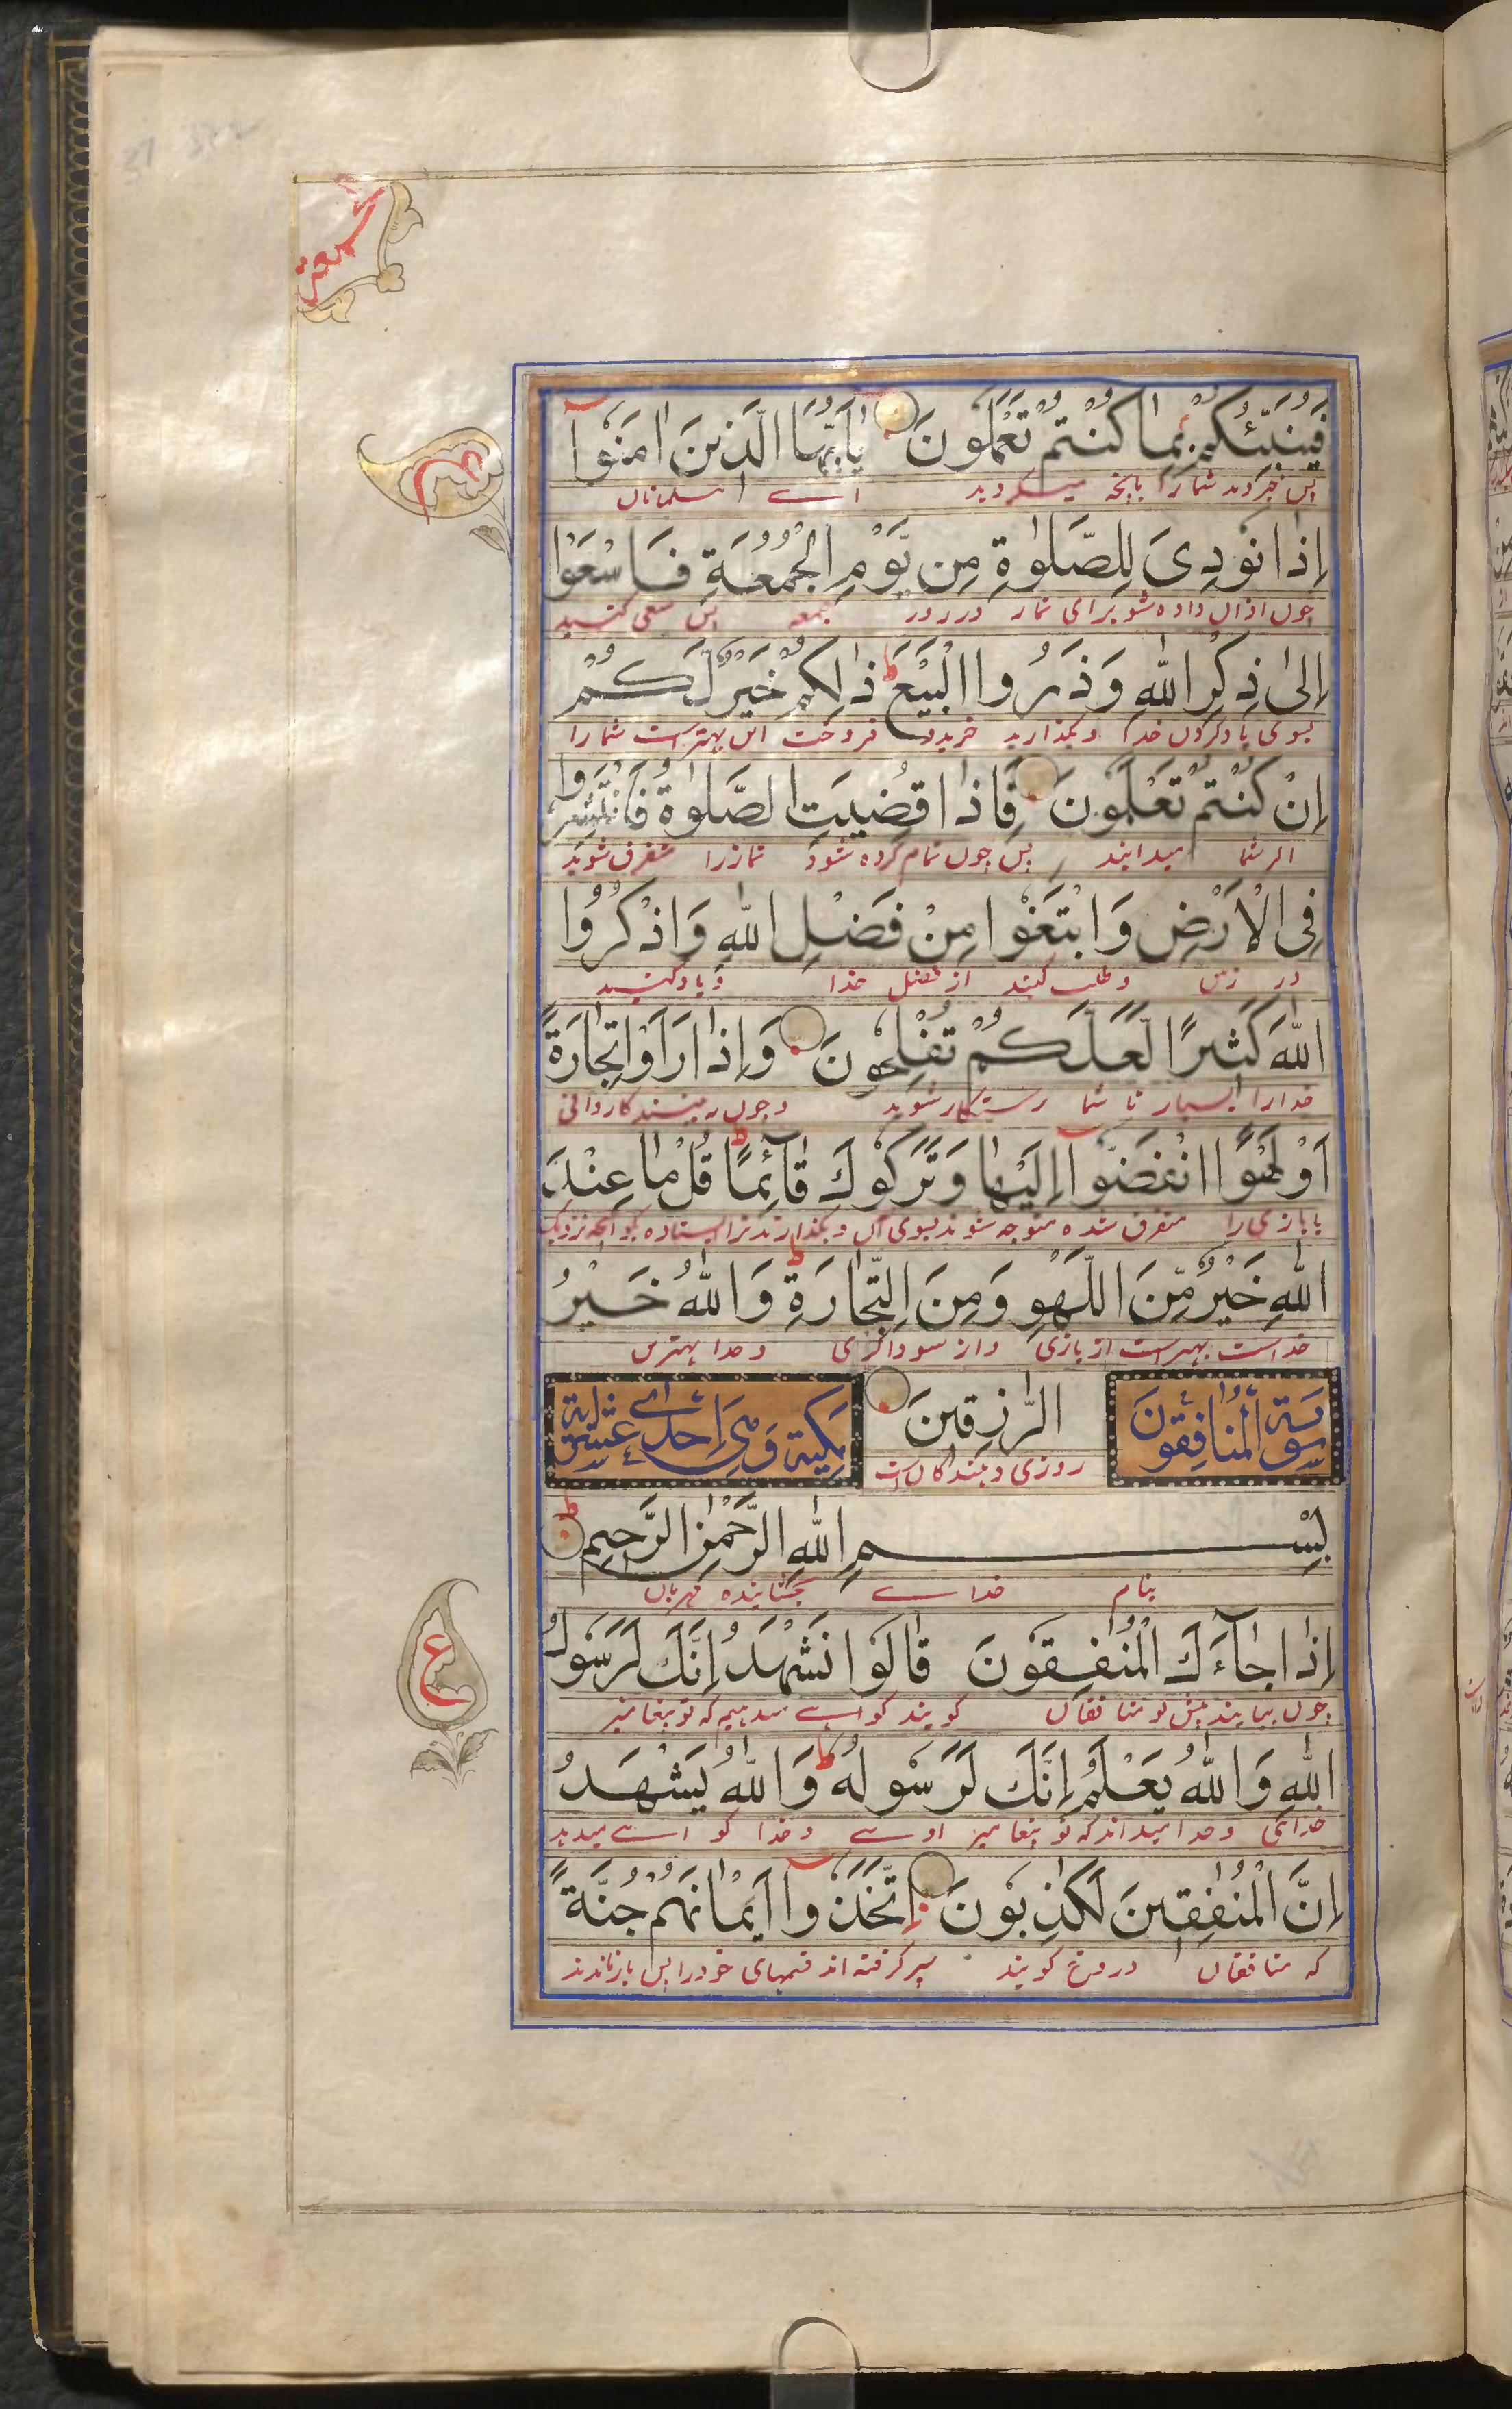 فَيُنَبِّئُكُمْ بِمَا كُنْتُمْ تَعْمَلُونَ يٰاَيُّهَا الَّذِينَ اٰمَنُوا
پس خبر دهد شما را بانچه میکردید اے مسلمانان
اِذَا نُودِىَ لِلصَّلٰوةِ مِن يَّوْمِ الْجُمُعَةِ فَاسْعَوْا
چون اذان داده شود برای نماز در روز جمعه پس سعی کنید
اِلىٰ ذِكْرِ اللّٰهِ وَذَرُوا الْبَيْعَ ط ذٰلِكُمْ خَيْرٌ لَّكُمْ
بسوی یاد کردن خدا و بگذارید خرید و فروخت این بهتر است شما را
اِنْ كُنْتُمْ تَعْلَمُونَ فَاِذَا قُضِيَتِ الصَّلٰوةُ فَانْتَشِرُوا
اگر شما میدانید پس چون تمام کرده شود نماز را متفرق شوید
فِى الْاَرْضِ وَابْتَغُوا مِنْ فَضْلِ اللّٰهِ وَاذْكُرُوا
در زمین و طلب کنید از فضل خدا و یاد کنید
اللّٰهَ كَثِيرًا لَّعَلَّكُمْ تُفْلِحُونَ وَاِذَا رَاَوْا تِجَارَةً
خدا را بسیار تا شما رستگار شوید و چون بینند کاروانی
اَوْ لَهْوًا انْفَضُّوا اِلَيْهَا وَتَرَكُوكَ قَآئِمًا ط قُلْ مَا عِنْدَ
یا بازی را متفرق شده متوجه شوند بسوی آن و بگذارند ترا ایستاده بگو آنچه نزدیک
اللّٰهِ خَيْرٌ مِّنَ اللَّهْوِ وَمِنَ التِّجَارَةِ ط وَاللّٰهُ خَيْرُ
خداست بهتر است از بازی و از سوداگری و خدا بهترین
سورة المنافقون الرّٰزِقِينَ مكية وهى احدى عشرة اية
روزی دهندگان است
بِسْمِ اللّٰهِ الرَّحْمٰنِ الرَّحِيمِ ط
بنام خداے بخشاینده مهربان
اِذَا جَآءَكَ الْمُنٰفِقُونَ قَالُوا نَشْهَدُ اِنَّكَ لَرَسُولُ
چون بیایند پیش تو منافقان گویند گواہے میدهیم که تو پیغامبر
اللّٰهِ وَاللّٰهُ يَعْلَمُ اِنَّكَ لَرَسُولُهُ ط وَاللّٰهُ يَشْهَدُ
خدائی و خدا میداند که تو پیغامبر اوسے و خدا گواہے میدهد
اِنَّ الْمُنٰفِقِينَ لَكٰذِبُونَ اِتَّخَذُوا اَيْمَانَهُمْ جُنَّةً
که منافقان دروغ گویند سپر گرفته اند قسمهای خود را پس باز ماندند
ع